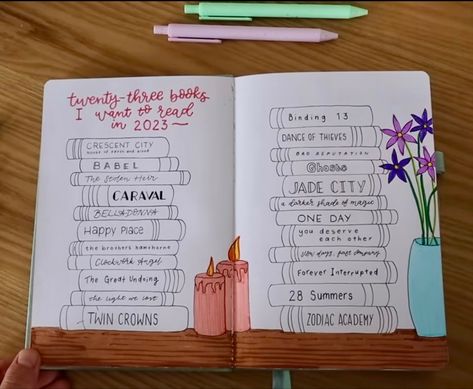 twenty-three books
I want to read
in 2023
CRESCENT CITY
HOUSE OF EARTH AND BLOOD
BABEL
The Stolen Heir
CARAVAL
BELLADONNA
Happy Place
the brothers hawthorne
Clockwork Angel
The Great Undoing
the light we lost
TWIN CROWNS
Binding 13
DANCE OF THIEVES
BAD REPUTATION
Ghosts
JADE CITY
a darker shade of magic
ONE DAY
you deserve
each other
slow days, fast company
Forever Interrupted
28 Summers
ZODIAC ACADEMY